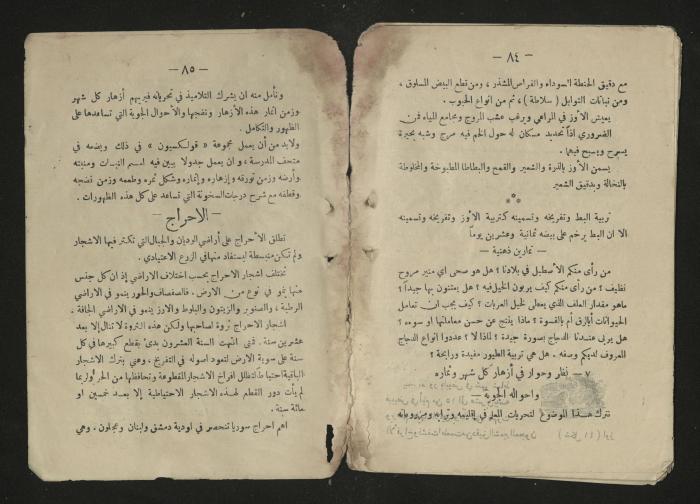 — ٨٤ —
مع دقيق الحنطة السوداء والقراص المشذر ، ومن قطع البيض المسلوق ،
ومن نباتات التوابل ( سلاطة ) ، ثم من انواع الحبوب .
يعيش الأوز في المراعي ويرغب عشب المروج ومجامع المياه فمن
الضروري اذاً تحديد مسكان له حول الخم فيه مرج وشبه بحيرة
يسرح ويسبح فيهما .
يسمن الأوز بالذرة والشعير والقمح والبطاطا المطبوخة والمخلوطة
بالنخالة وبدقيق الشعير
***
تربية البط وتفريخه وتسمينه كتربية الأوز وتفريخه وتسمينه
الا ان البط يرخم على بيضه ثمانية وعشرين يوماً
— تمارين ذهنية —
من رأى منكم الأسطبل في بلادنا ؟ هل هو صحي اي منير مروح
نظيف ؟ من رأى منكم كيف يربون الخيل فيه ؟ هل يعتنون بها جيداً ؟
ماهو مقدار العلف الذي يعطى لخيل العربات ؟ كيف يجب ان تعامل
الحيوانات أبالرفق أم بالقسوة ؟ ماذا ينتج عن حسن معاملتها او سوءه ؟
هل يربى عندنا الدجاج بصورة جيدة ؟ لماذا لا ؟ عددوا انواع الدجاج
المعروف لديكم وصفه . هل هي تربية الطيور مفيدة ورابحة ؟
٧ — نظر وحوار في أزهار كل شهر وثماره
واحواله الجوية —
نترك هـذا الموضوع لتحريات المعلم في إقليمه وترابه وبيئته
— ٨٥ —
ونأمل منه ان يشرك التلاميذ في تحرياته فيريهم أزهار كل شهر
وزمن اثمار هذه الأزهار ونضجها والأحوال الجوية التي تساعدها على
الظهور والتكامل .
ولابد من أن يعمل مجموعة « قولكسيون » في ذلك ويضعه في
متحف المدرسة ، و ان يعمل جدولا يبين فيه اسم النبات ومنبته
وأرضه وزمن تورقه وإزهاره وإثماره وشكل ثمره وطعمه وزمن نضجه
وقطفه مع شرح درجات السخونة التي تساعد على كل هذه الظهورات .
— الاحراج —
تطلق الأحراج على أراضي الوديان والجبال التي تكثر فيها الاشجار
ولم تكن منبسطة ليستفاد منها في الزرع الاعتيادي .
تختلف اشجار الاحراج بحسب اختلاف الاراضي إذ ان كل جنس
منها ينمو في نوع من الارض . فالصفصاف والحور ينمو في الاراضي
الرطبة ، والصنوبر والزيتون والبلوط والارز ينمو في الاراضي الجافة .
اشجار الاحراج ثروة لصاحبها ولكن هذه الثروة لا تنال إلا بعد
عشرين سنة . فمتى انتهت السنة العشرون بدئ بقطع كبيرها في كل
سنة على سوية الارض لتعود اصوله في التفريخ ، وهي بترك الاشجار
الباقية احتياطاً لتظلل افراخ الأشجار المقطوعة وتحافظها من الحر وليربما
لم يأت دور القطع لهذه الاشجار الاحتياطية إلا بعد خمسين او
مائة سنة .
اهم احراج سوريا تنحصر في اودية دمشق ولبنان وعجلون . وهي